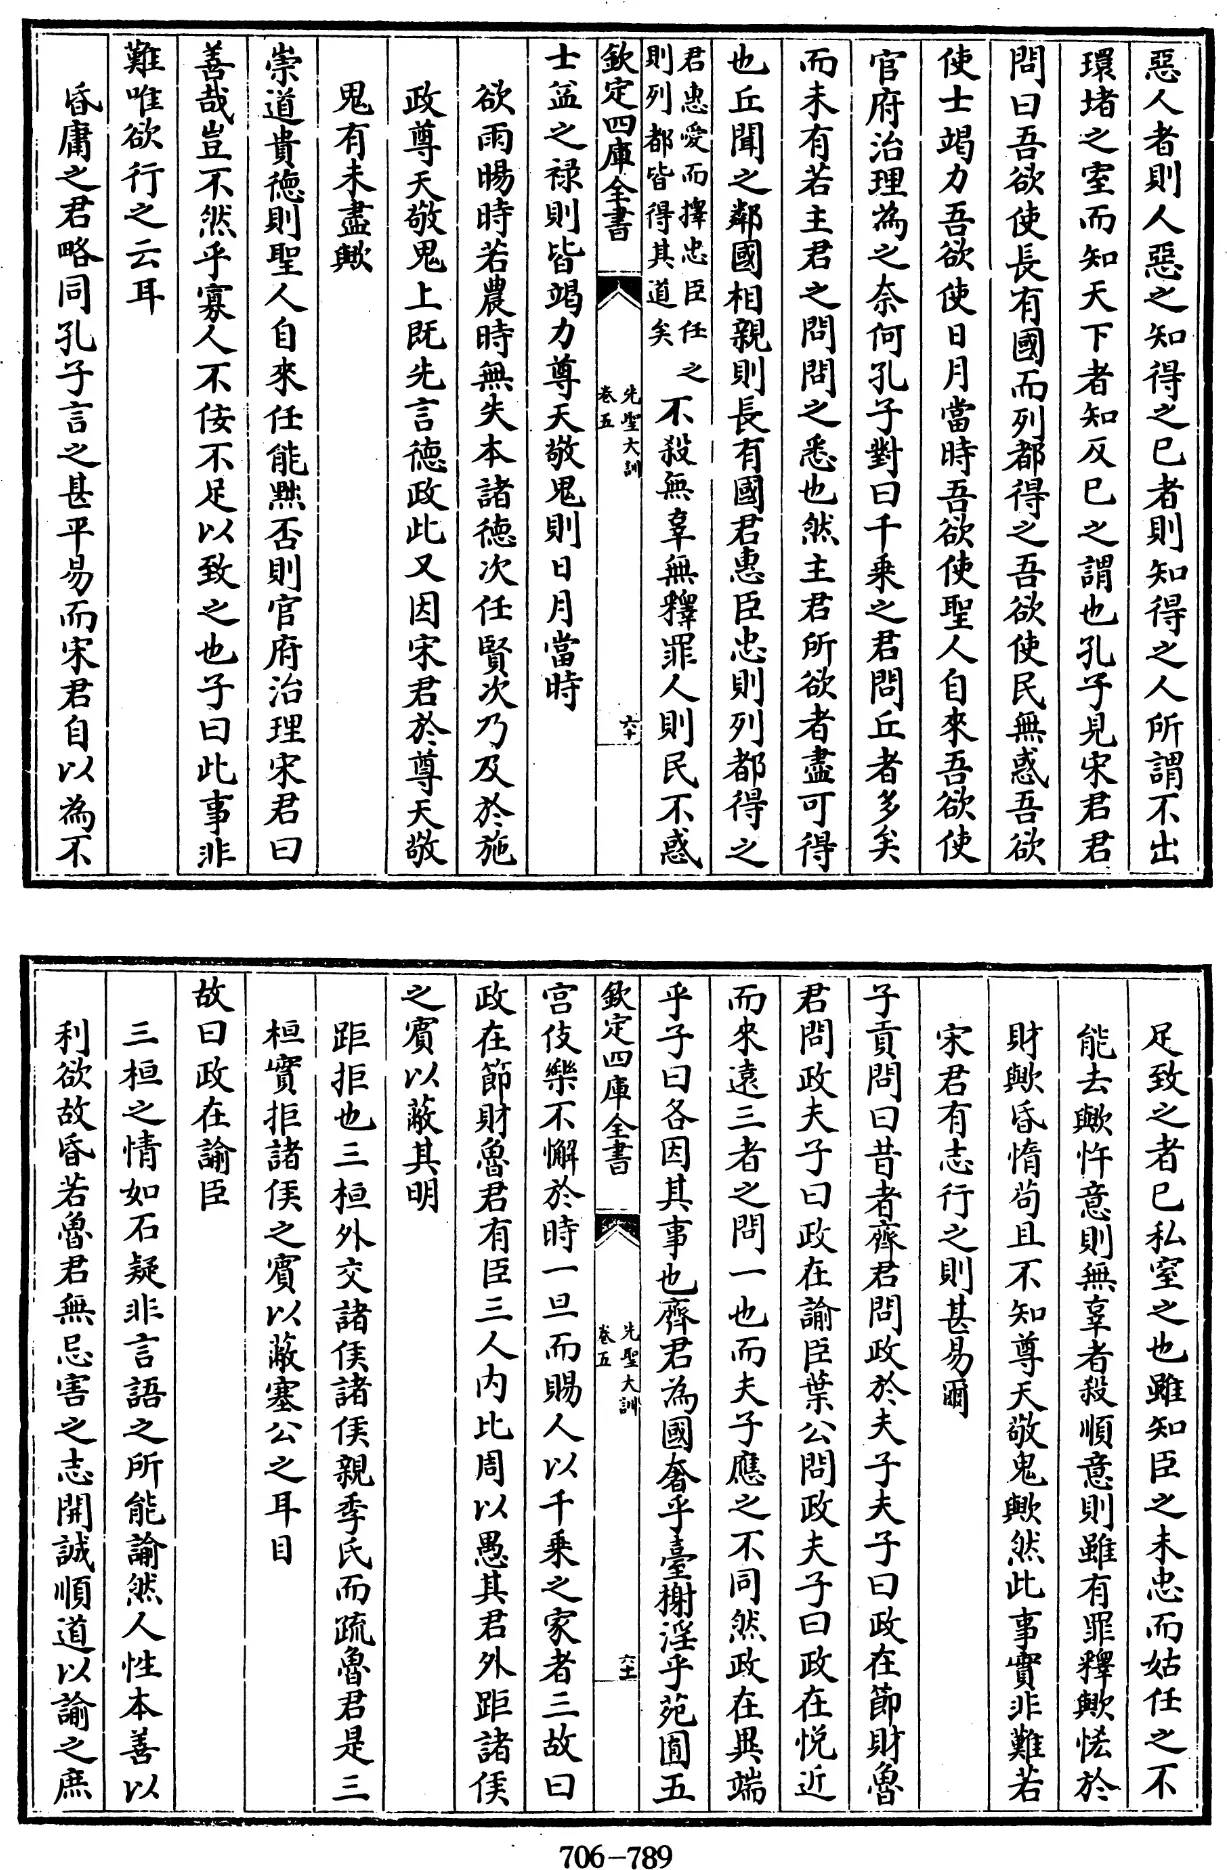 惡人者則人惡之知得之已者則知得之人所謂不出
環堵之室而知天下者知反已之謂也孔子見宋君君
問曰吾欲使長有國而列都得之吾欲使民無惑吾欲
使士竭力吾欲使日月當時吾欲使聖人自來吾欲使
官府治理為之奈何孔子對曰千乘之君問丘者多矣
而未有若主君之問問之悉也然主君所欲者盡可得
也丘聞之鄰國相親則長有國君惠臣忠則列都得之
君惠愛而擇忠臣任之
則列都皆得其道矣
不殺無辜無釋罪人則民不惑
欽定四庫全書
先聖大訓
卷五
六十
士益之禄則皆竭力尊天敬鬼則日月當時
欲雨暘時若農時無失本諸德次任賢次乃及於施
政尊天敬鬼上既先言德政此又因宋君於尊天敬
鬼有未盡歟
崇道貴德則聖人自來任能黜否則官府治理宋君曰
善哉豈不然乎寡人不佞不足以致之也子曰此事非
難唯欲行之云耳
昏庸之君略同孔子言之甚平易而宋君自以為不
足致之者已私窒之也雖知臣之未忠而姑任之不
能去歟忤意則無辜者殺順意則雖有罪釋歟恡於
財歟昏惰苟且不知尊天敬鬼歟然此事實非難若
宋君有志行之則甚易爾
子貢問曰昔者齊君問政於夫子夫子曰政在節財魯
君問政夫子曰政在諭臣葉公問政夫子曰政在悅近
而來遠三者之問一也而夫子應之不同然政在異端
乎子曰各因其事也齊君為國奢乎臺榭淫乎苑囿五
欽定四庫全書
先聖大訓
卷五
六十一
宮伎樂不懈於時一旦而賜人以千乘之家者三故曰
政在節財魯君有臣三人內比周以愚其君外距諸侯
之賓以蔽其明
距拒也三桓外交諸侯諸侯親季氏而疏魯君是三
桓實拒諸侯之賓以蔽塞公之耳目
故曰政在諭臣
三桓之情如石疑非言語之所能諭然人性本善以
利欲故昏若魯君無忌害之志開誠順道以諭之庶
706-789